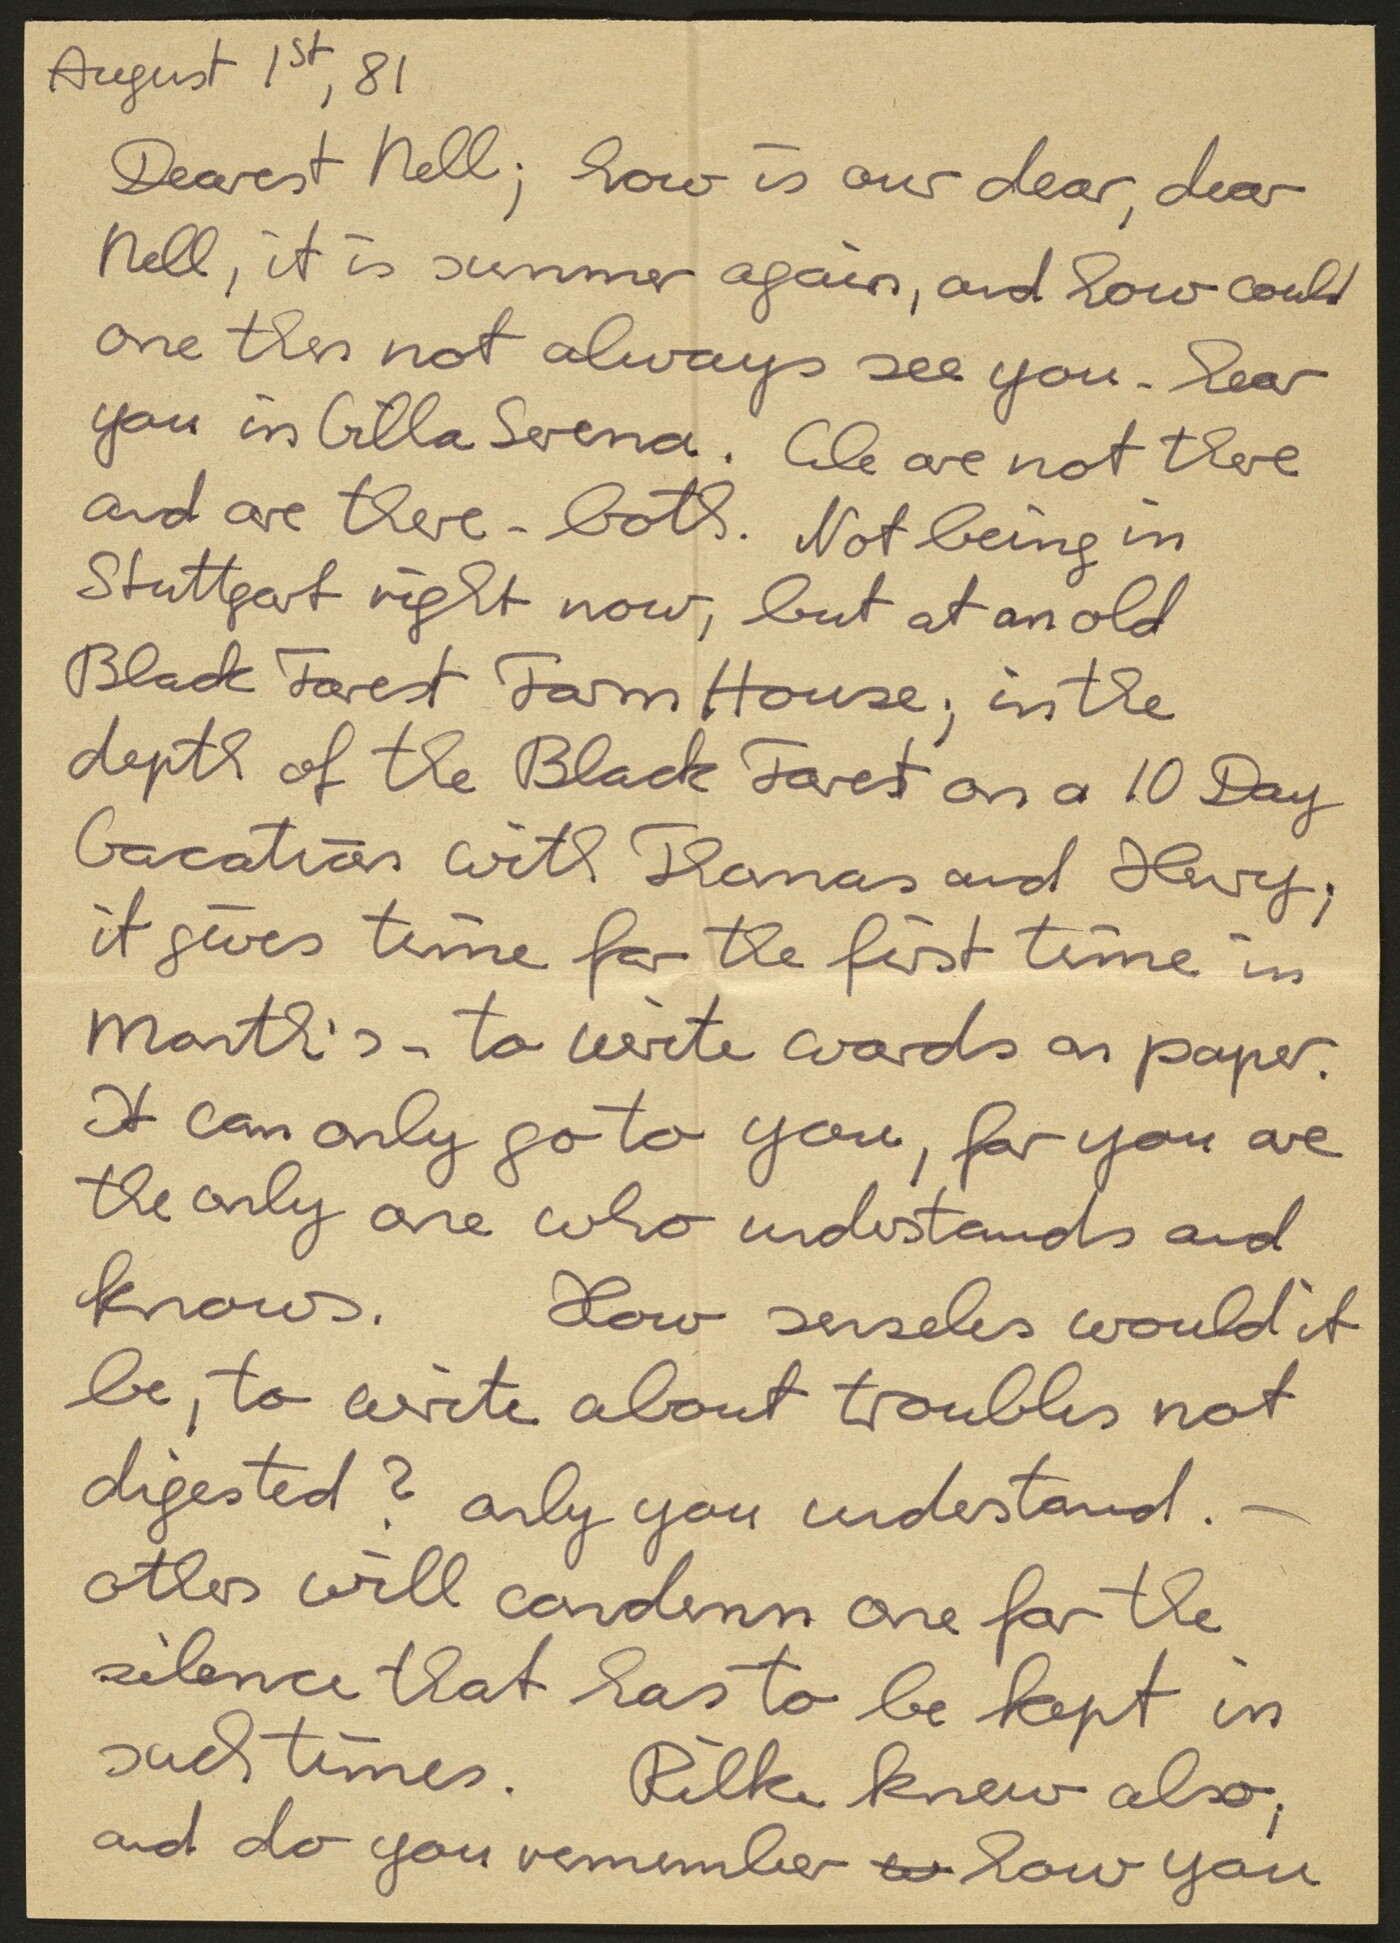 August 1st, 81
Dearest Nell; how is our dear, dear
Nell, it is summer again, and how could
one then not always see you - hear
you in Villa Serena. We are not there
and are there - both. Not being in
Stuttgart right now, but at an old
Black Forest Farm House; in the
depth of the Black Forest on a 10 Day
Vacation with Thomas and Henry;
it gives time for the first time in
Month's - to write words on paper.
It can only go to you, for you are
the only one who understands and
knows. How senseles would it
be, to write about troubles not
digested? only you understand. -
others will condemn one for the
silence that has to be kept in
such times. Rilke knew also;
and do you remember how you